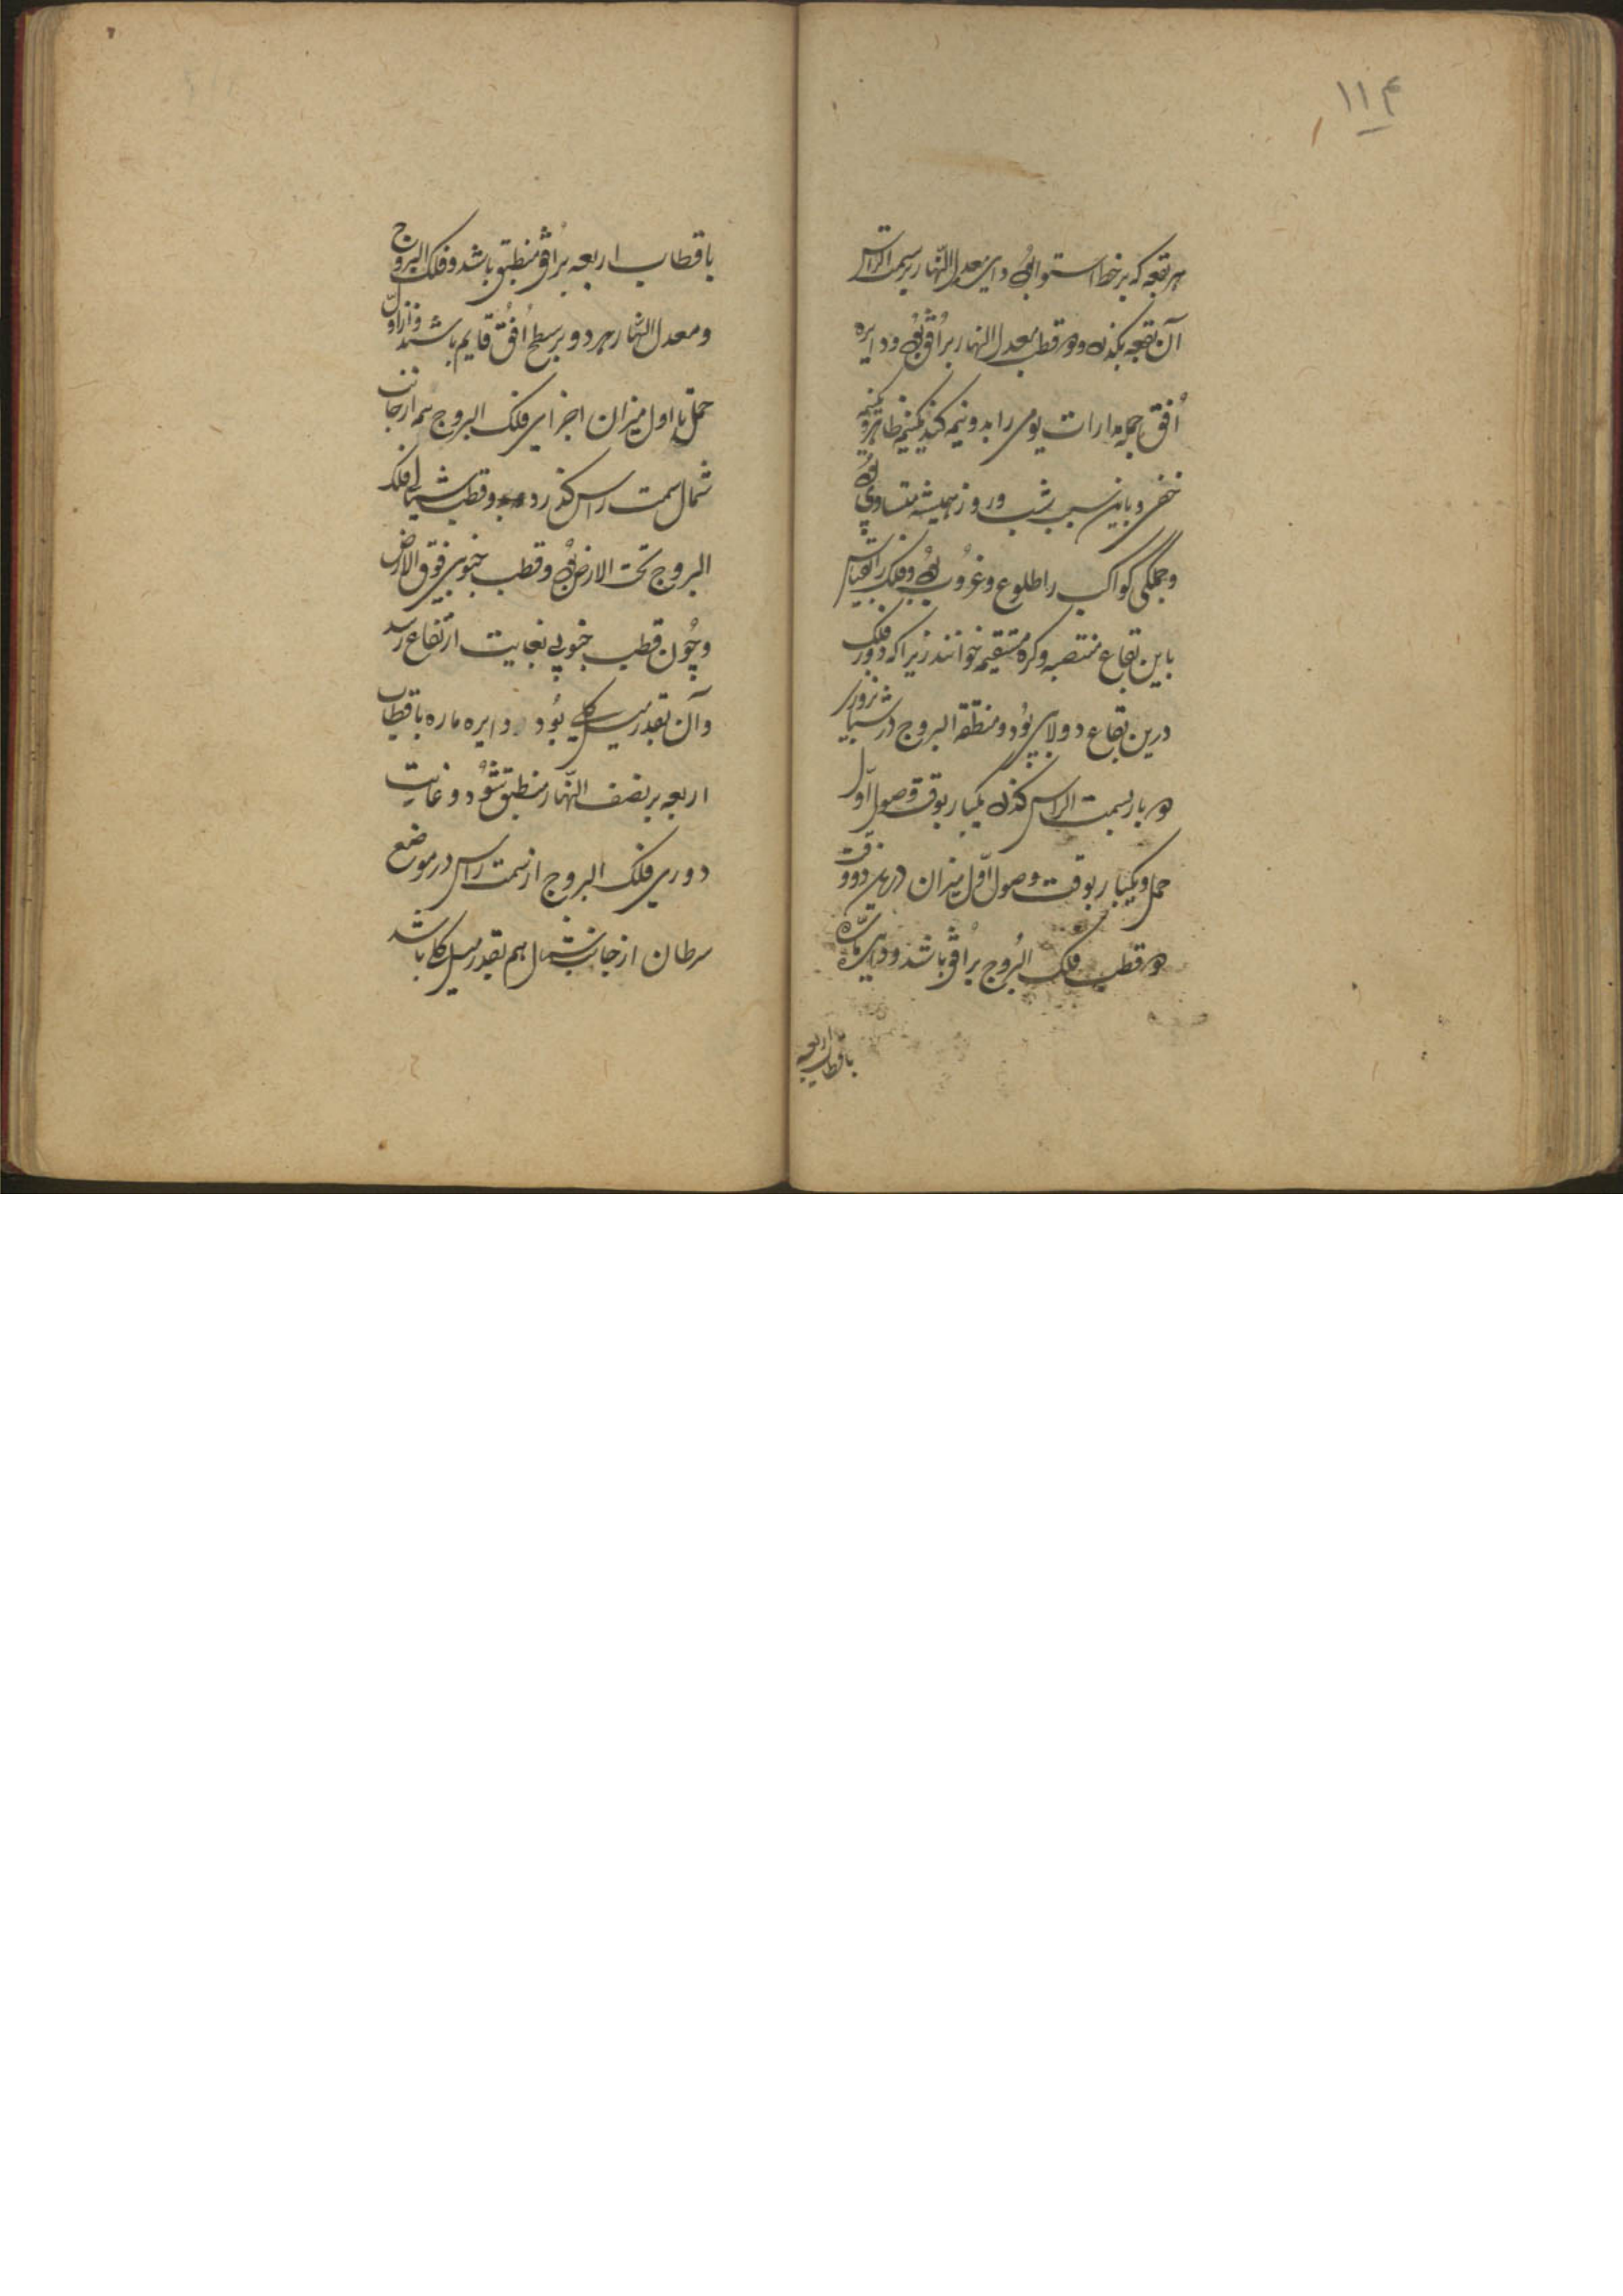 ۱۱۴
هر بقعه که بر خط استوا بود دایره معدل النهار بر سمت الراس
آن بقعه بگذرد و دو قطب معدل النهار بر اُفق بود و دایره
اُفق جمله مدارات یومی را بدو نیمه کند یکنیمه ظاهر و یکنیمه
خفی و باین سبب شب و روز همیشه متساوی بود
و جملگی کواکب را طلوع و غروب بود و فلک را بقیاس
باین بقاع منتصبه و کره مستقیمه خوانند زیرا که دور فلک
درین بقاع دولابی بُود و منطقة البروج در شبانروزی
دو بار بسمت الراس گذرد یکبار بوقت وصول اوّل
حمل و یکبار بوقت وصول اوّل میزان درین دو وقت
دو قطب فلک البُروج بر اُفق باشد و دایره مارّه
باقطاب اربعه
باقطاب اربعه بر اُفق منطبق باشد و فلک البروج
و معدل النهار هر دو بر سطح اُفُق قایم باشند و از اوّل
حمل تا اول میزان اجزای فلک البروج هم از جانب
شمال سمت راس گذرد و قطب شمالی فلک
البروج تحت الارض بُود و قطب جنوبی فوق الارض
و چُون قطب جنوبی بغایت ارتفاع رسد
و آن بقدر میل کلی بُود دایره ماره باقطاب
اربعه بر نصف النّهار منطبق شوُد و غایت
دوری فلک البروج از سمت راس در موضع
سرطان از جانب شمال هم بقدر میل کلی باشد